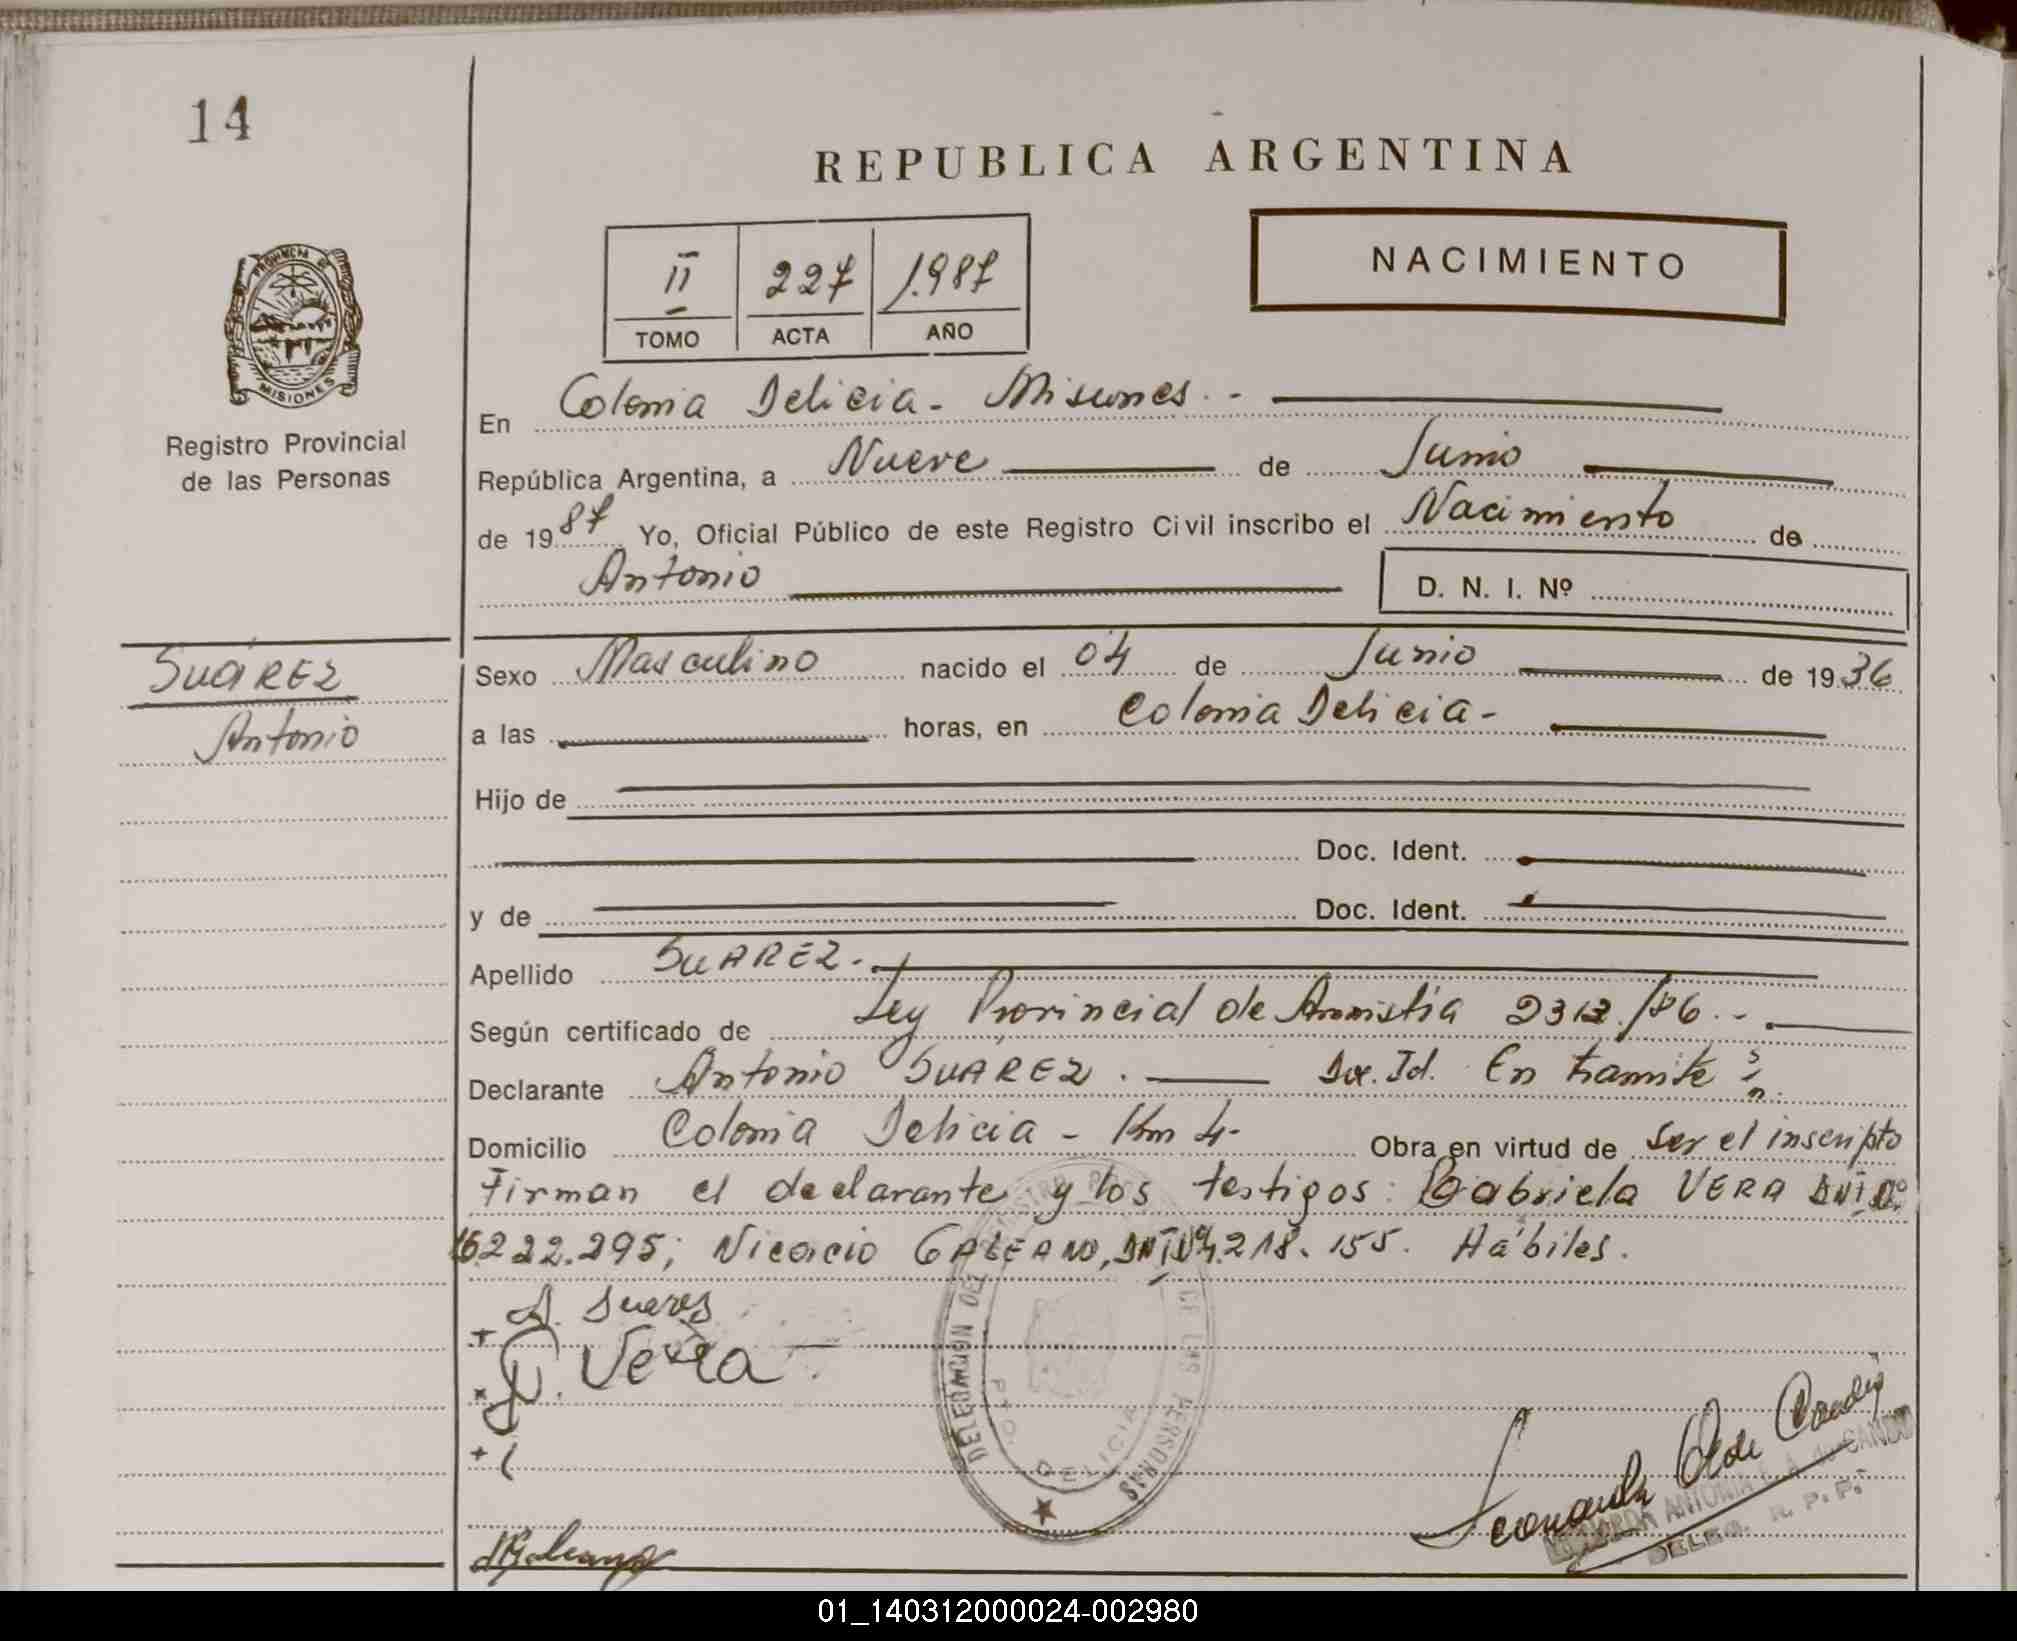 14
REPUBLICA ARGENTINA
NACIMIENTO
II 227 1.987
TOMO ACTA AÑO
PROVINCIA DE MISIONES
Registro Provincial
de las Personas
En Colonia Delicia - Misiones. -
República Argentina, a Nueve de Junio
de 1987 Yo, Oficial Público de este Registro Civil inscribo el Nacimiento de
Antonio D. N. I. Nº
SUÁREZ
Antonio
Sexo Masculino nacido el 04 de Junio de 1936
a las horas, en Colonia Delicia -
Hijo de
Doc. Ident.
y de Doc. Ident.
Apellido SUAREZ.
Según certificado de Ley Provincial de Amnistía /86. -
Declarante Antonio SUÁREZ. Doc. Id. En tramite
Domicilio Colonia Delicia - Km 4 - Obra en virtud de ser el inscripto
Firman el declarante y los testigos: Gabriela VERA DNI nº
16.222.295; Nicacio GALEANO, DNI Nº 4.218.155. Hábiles.
A. Suares
G. Vera
DELEGACION DEL REGISTRO DE LAS PERSONAS
PTO. DELICIA
DELEG. R. P. P.
01_140312000024-002980